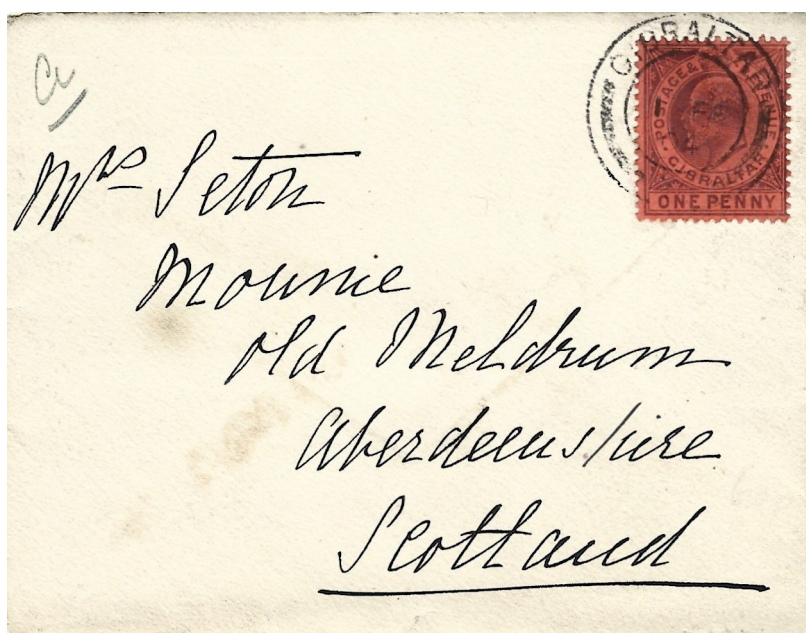 GIBRALTAR
POSTAGE & REVENUE
GIBRALTAR
ONE PENNY
Mrs Seton
Mounie
Old Meldrum
Aberdeenshire
Scotland